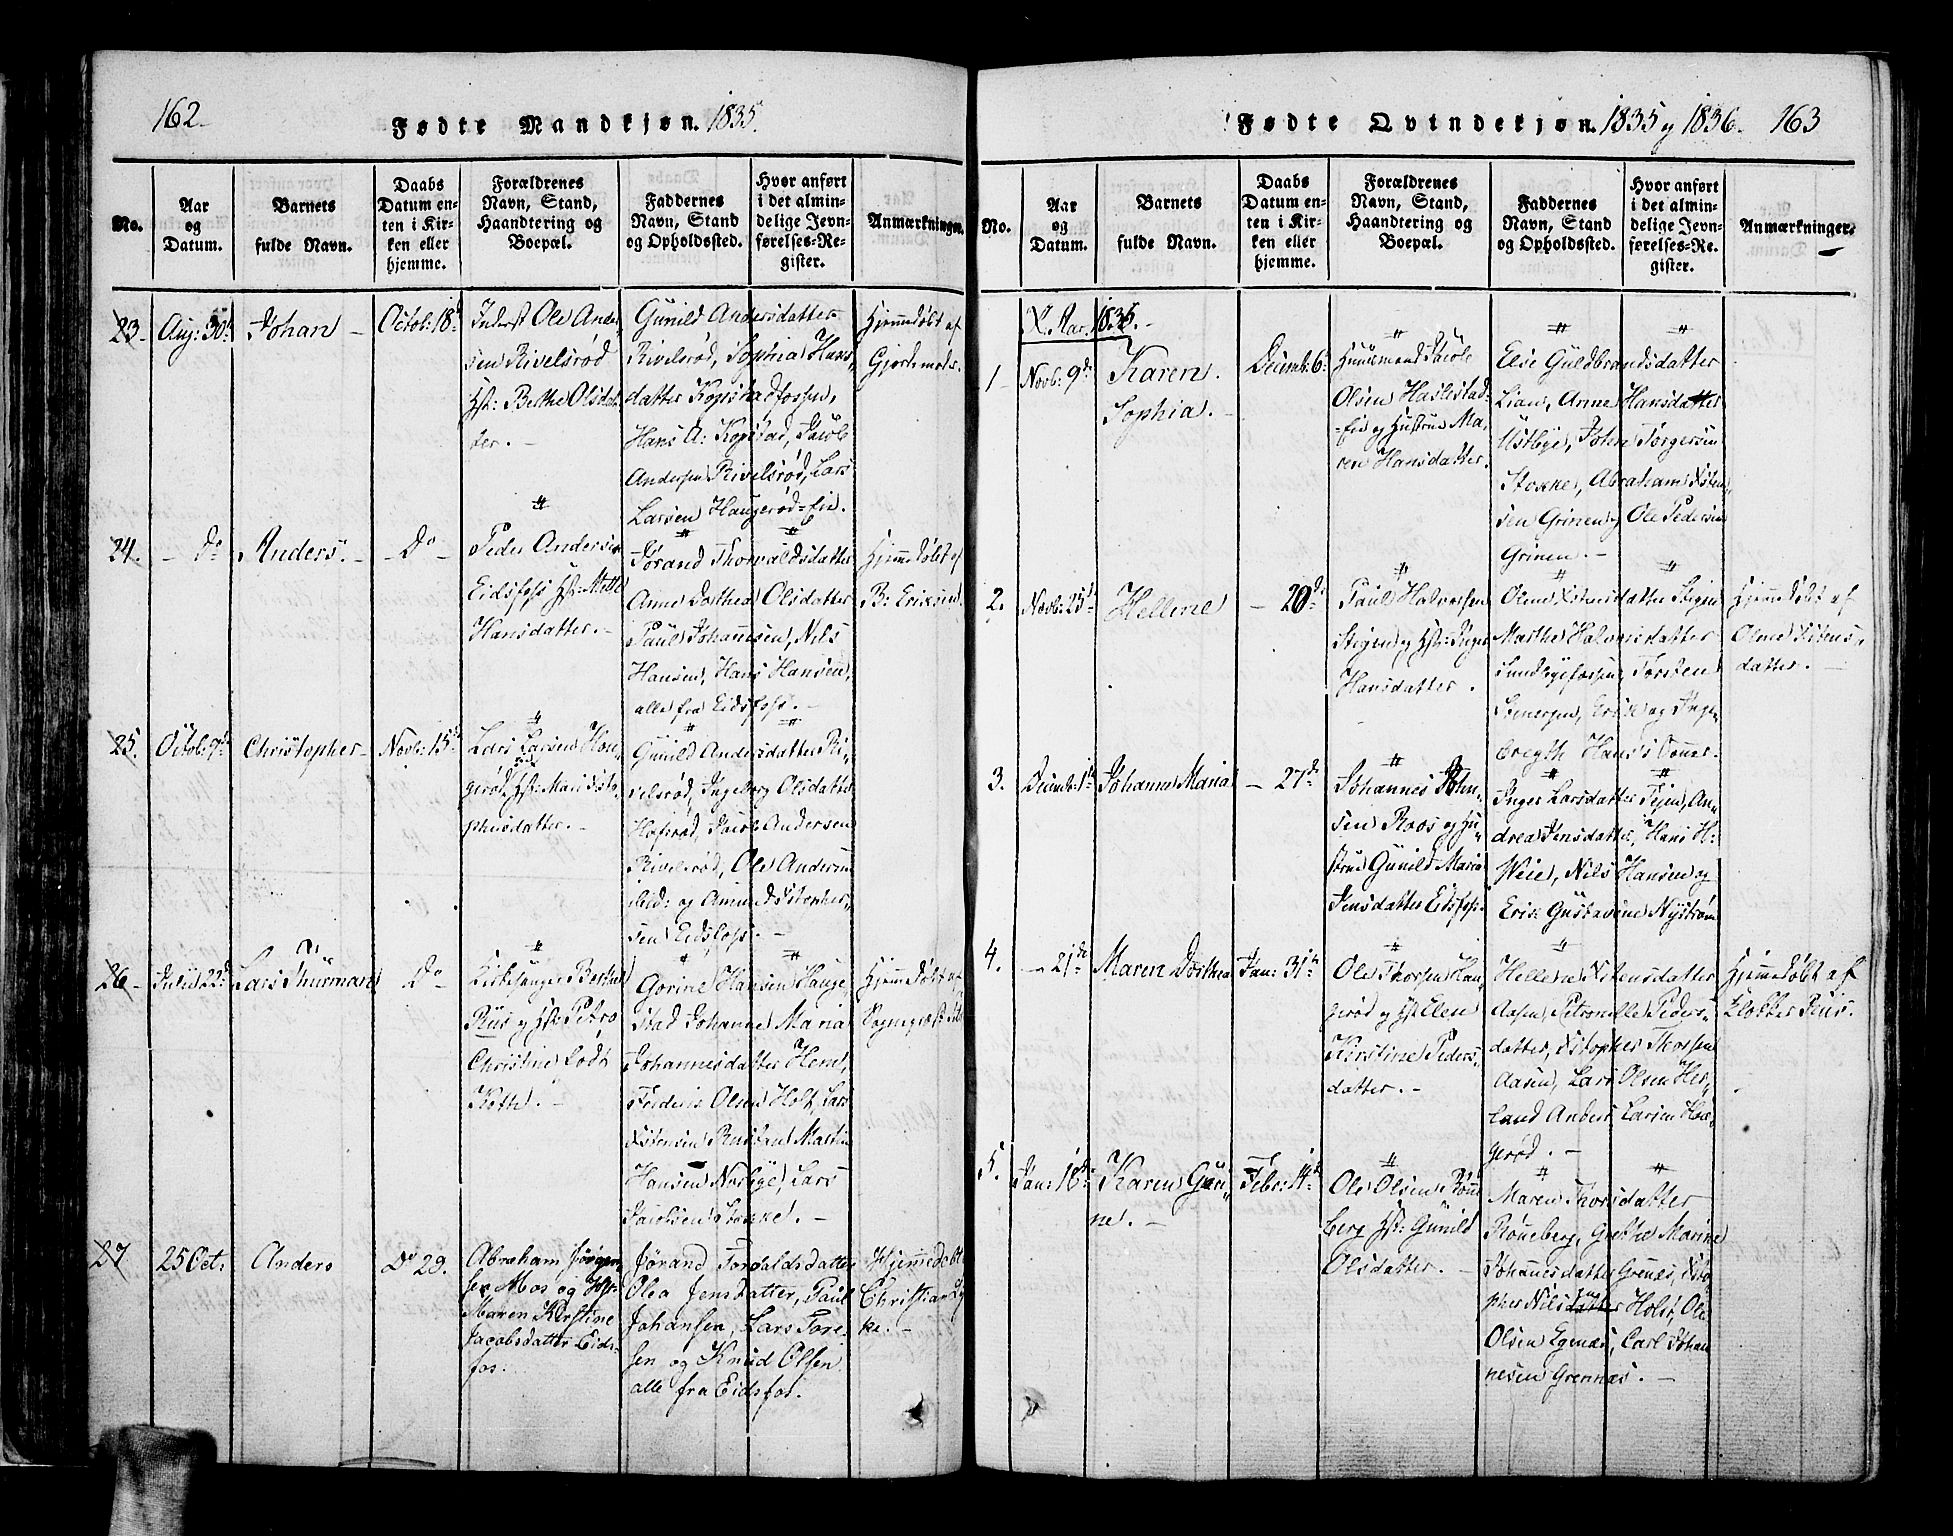 162.
Fødte Mandkjøn. 1835.
No.
Aar
og
Datum.
Barnets
fulde Navn.
Daabs
Datum en-
ten i Kir-
ken eller
hjemme.
Forældrenes
Navn, Stand,
Haandtering og
Boepæl.
Faddernes
Navn, Stand
og Opholdssted.
Hvor anført
i det almin-
delige Jevn-
førelses-Re-
gister.
Anmærkninger.
23.
Aug: 30te
Johan –
Octob: 18de
Inderst Ole Ander
sen Rivelsrød
Hst: Berthe Olsdat
ter. –
Gunild Andersdatter
Rivelsrød, Sophia Hans
datter Kopstadfossen,
Hans A: Kopstad, Jacob
Andersen Rivelsrød, Lars
Larsen Haugerød-Eie.
Hjemmedøbt af
Gjordmoder.
24.
– Do
Anders. –
– Do –
Peder Andersen
Eidsfoss Hst: Mette
Hansdatter. –
Jørand Thorvaldsdatter
Anne Dorthea Olsdatter
Paul Johannesen, Nils
Hansen, Hans Hansen,
alle fra Eidsfoss. –
Hjemmedøbt af
B: Eriksen.
25.
Octob: 9de
Christopher –
Novb: 15de
Lars Larsen Hou
gerød Hst: Mari Xsto
phersdatter. –
Gunild Andersdatter Ri
velsrød, Ingeborg Olsdatter
Hofsrød, Jacob Andersen
Rivelsrød, Ole Andersen
ibid: og Amund Xstopher
sen Eidsfoss. –
26 –
Julii 22de
Lars Thurman
Do
Kirkesanger Berthel
Riis og Hst: Petro
Christine Lods
Koth. –
Gorine Hansen Hauge
stad Johanne Maria
Johannesdatter Hem,
Frederic Olsen Holt, Lars
Xstensen Rustan, Martin
Hansen Nordbye, Lars
Jacobsen Stokke. –
Hjemmedøbt af
Sognepræst
27
25 Oct:
Anders
Do 29.
Abraham Jørgen
sen Moss og Hst:
Maren Kirstine
Jacobsdatter Eids-
fos.
Jørand Torvaldsdatter
Olea Jensdatter, Paul
Johansen, Lars Tore-
sen og Knud Olsen
alle fra Eidsfos.
Hjemmedøbt
Christian Ly
ke. –
Fødte Qvindekjøn. 1835 og 1836. 163
No.
Aar
og
Datum.
Barnets
fulde Navn.
Daabs
Datum en-
ten i Kir-
ken eller
hjemme.
Forældrenes
Navn, Stand,
Haandtering og
Boepæl.
Faddernes
Navn, Stand
og Opholdssted.
Hvor anført
i det almin-
delige Jevn-
førelses-Re-
gister.
Anmærkninger.
K. Aar. 1836. –
1
Novb: 9de
Karen
Sophia. –
Decemb: 6te
Huusmand Jacob
Olsen Haslestad-
Eie og Hustrue Ma
ren Hansdatter.
Else Guldbrandsdatter
Lian, Anne Hansdatter
Ustbye, John Torgersen
Stokke, Abraham Xsten
sen Grinen og Ole Pedersen
Grinen. –
2.
Novb: 25de
Hellene
– 20de
Paul Halvorsen
Stigen og Hst: Inger
Hansdatter.
Olene Xstensdatter Stigen
Marthe Halvorsdatter
Sundbyefossen, Torsten
Erik og Inge
Hjemmedøbt af
Olene Xstens
datter. –
3.
Decemb: 1te
Johanne Maria
– 27de
Johannes John
sen Roos og Hu
strue Gunild Maria
Jensdatter Eidsfoss.
Inger Larsdatter Teien, An
drea Jensdatter, Hans H:
Weie, Nils Hansen og
Eric Gustavene Nystrøm
4.
– 21de
Maren Dorthea
Jan: 31te
Ole Thorsen Hau
gerød og Hst Elen
Kirstine Peders
datter. –
Hellene Xstensdatter
Aasen, Petronelle Peders
datter, Xstopher Thorsen
Aasen, Lars Olsen Hes
land Anders Larsen Hou
gerød. –
Hjemmedøbt af
Klokker Riis.
5.
Jan: 18de
Karen Guri
ne. –
Febr: 14de
Ole Olsen Rønne
berg Hst: Gunild
Olsdatter. –
Maren Thorsdatter
Røneberg, Grethe Marine
Johannesdatter Grenes, Xsto
pher Nilsdatter Holst, Ole
Olsen Egenæs, Carl Johan
nesen Grennæs. –